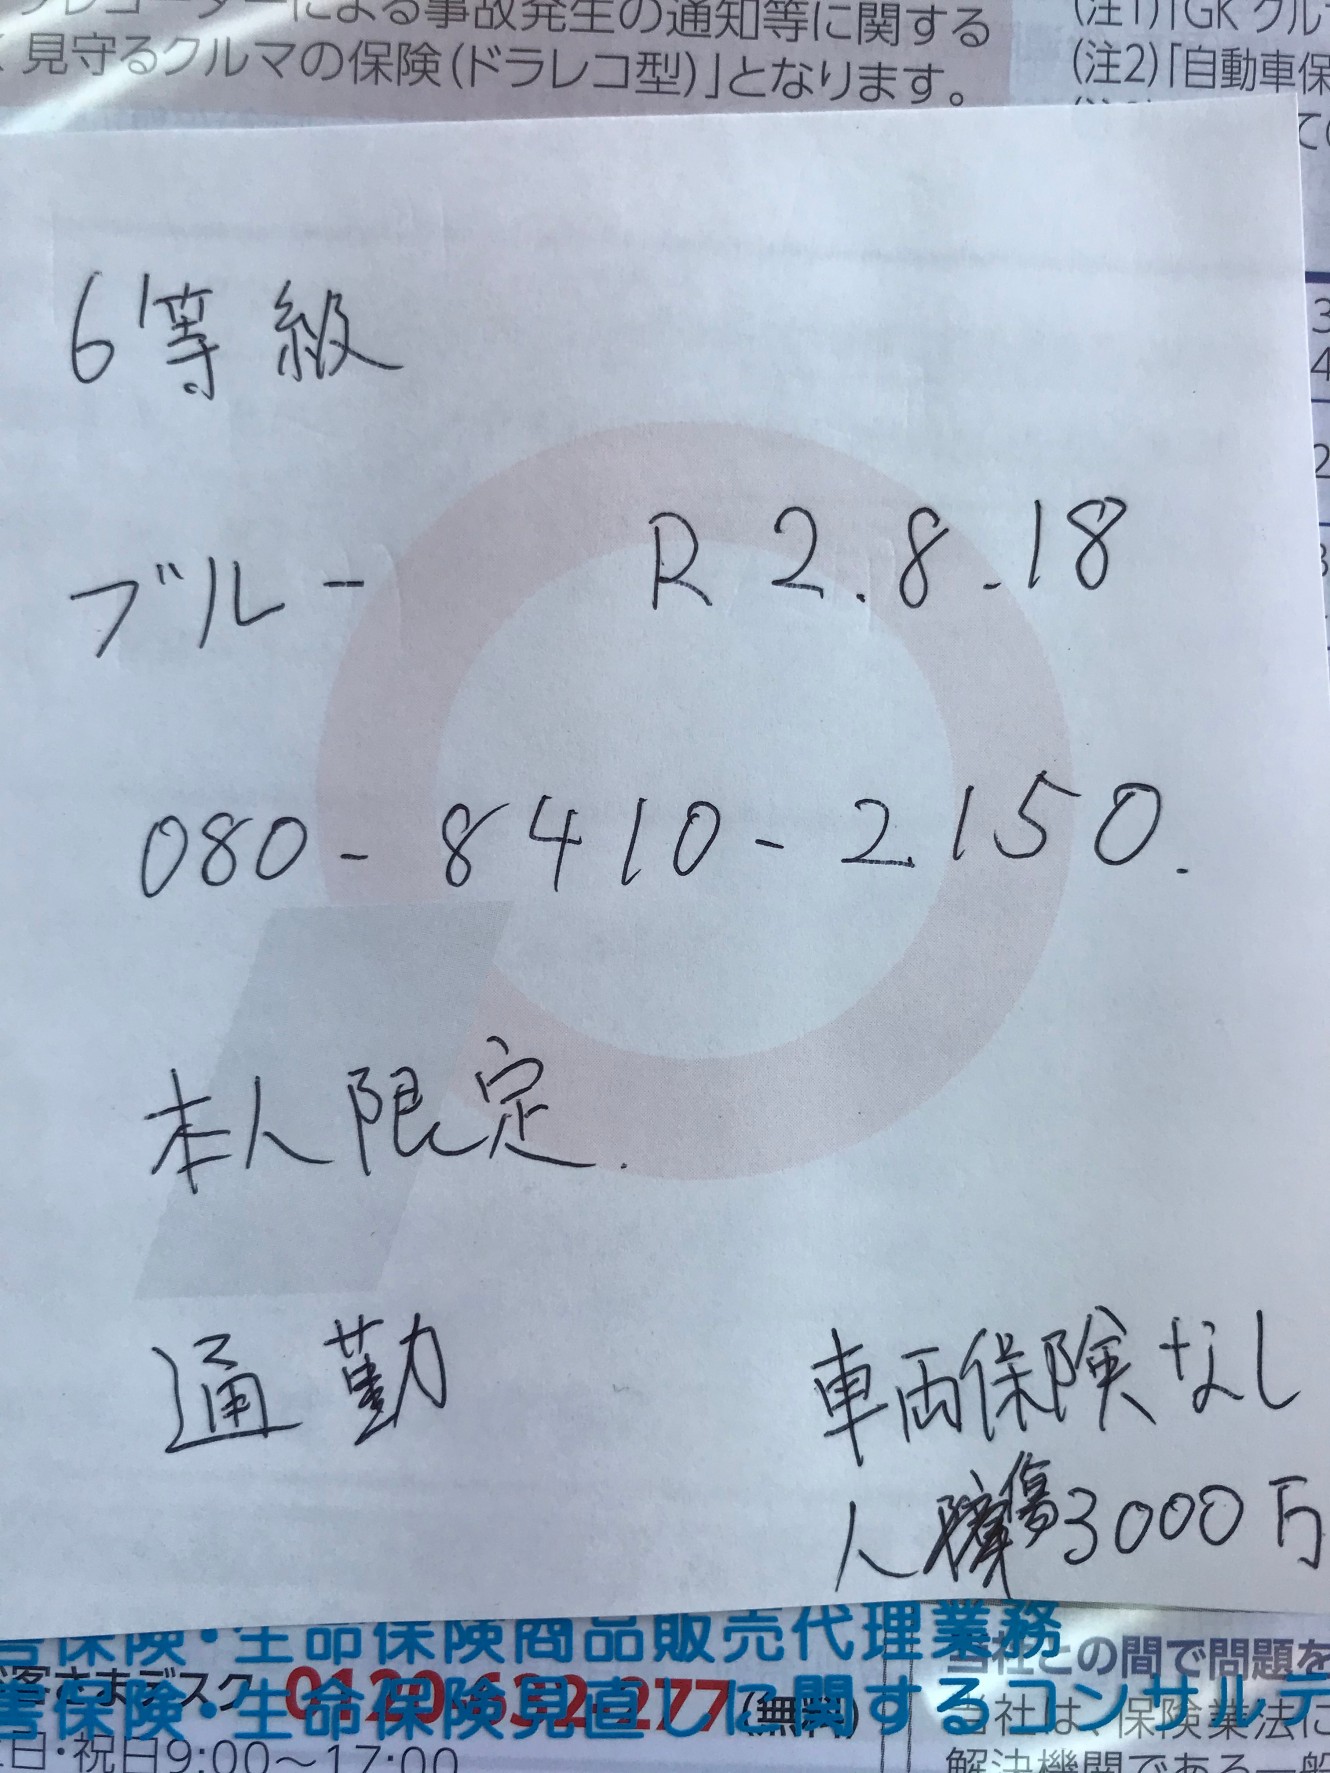 コーダーによる事故発生の通知等に関する
見守るクルマの保険(ドラレコ型)」となります。
(注1)「GK クル
(注2)「自動車保
6等級
ブルー R2.8.18
080-8410-2150.
本人限定.
通勤
車両保険なし
人傷3000万
害保険・生命保険商品販売代理業務
客さまデスク 0120-632-277(無料)
害保険・生命保険見直しに関するコンサルテ
日・祝日9:00～17:00
当社との間で問題を
当社は、保険業法に
解決機関である一般